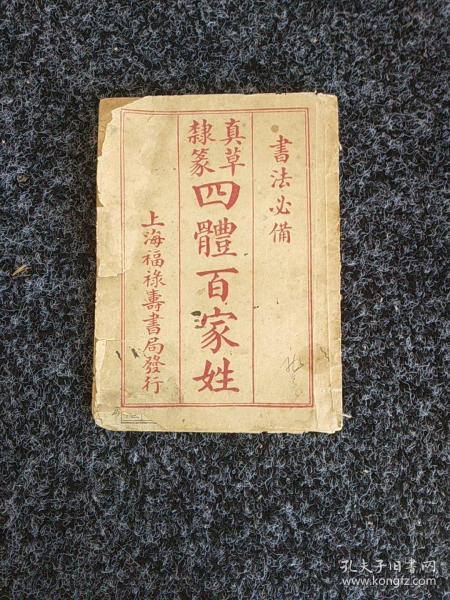 書法必備
真草
隸篆
四體百家姓
上海福祿壽書局發行
孔夫子旧书网
www.kongfz.com